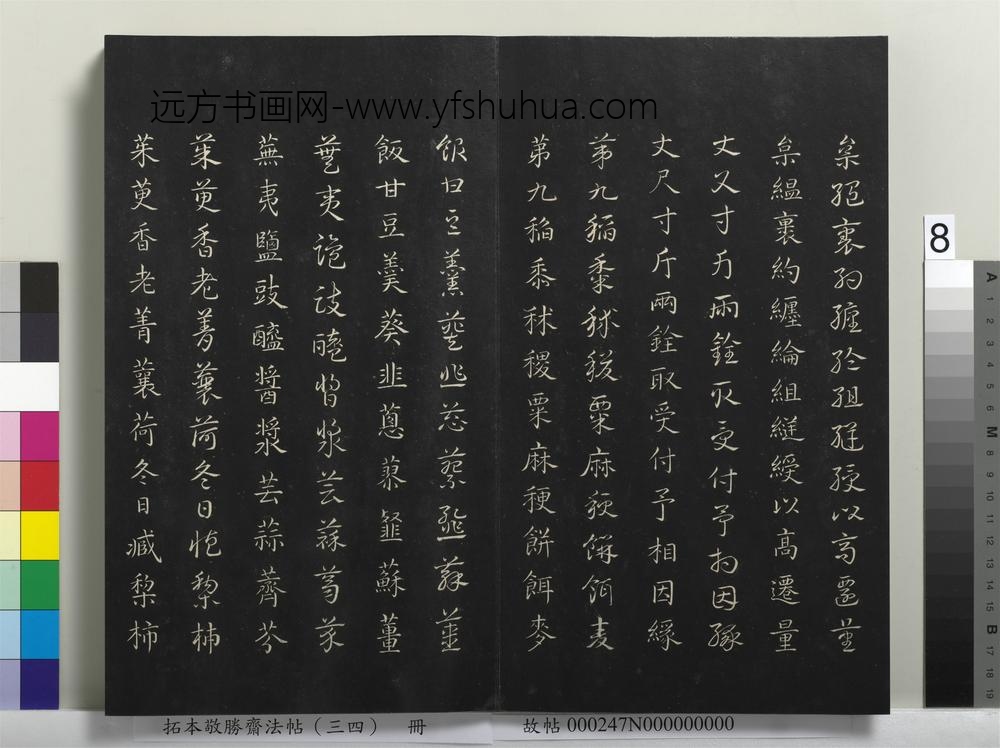 远方书画网-www.yfshuhua.com
枲縕裏約纏綸組縫綬以高遷量
枲縕裏約纏綸組縫綬以高遷量
丈尺寸斤兩銓取受付予相因緣
丈尺寸斤兩銓取受付予相因緣
第九稻黍秫稷粟麻稉餅餌麥
第九稻黍秫稷粟麻稉餅餌麥
飯甘豆羹葵韭蔥蓼韰蘇薑
飯甘豆羹葵韭蔥蓼韰蘇薑
蕪夷鹽豉醯醬漿芸蒜薺芥
蕪夷鹽豉醯醬漿芸蒜薺芥
茱萸香老菁蘘荷冬日臧梨柿
茱萸香老菁蘘荷冬日臧梨柿
拓本敬勝齋法帖（三四） 冊
故帖 000247N000000000
8
A 1 2 3 4 5 6 M 8 9 10 11 12 13 14 15 B 17 18 19